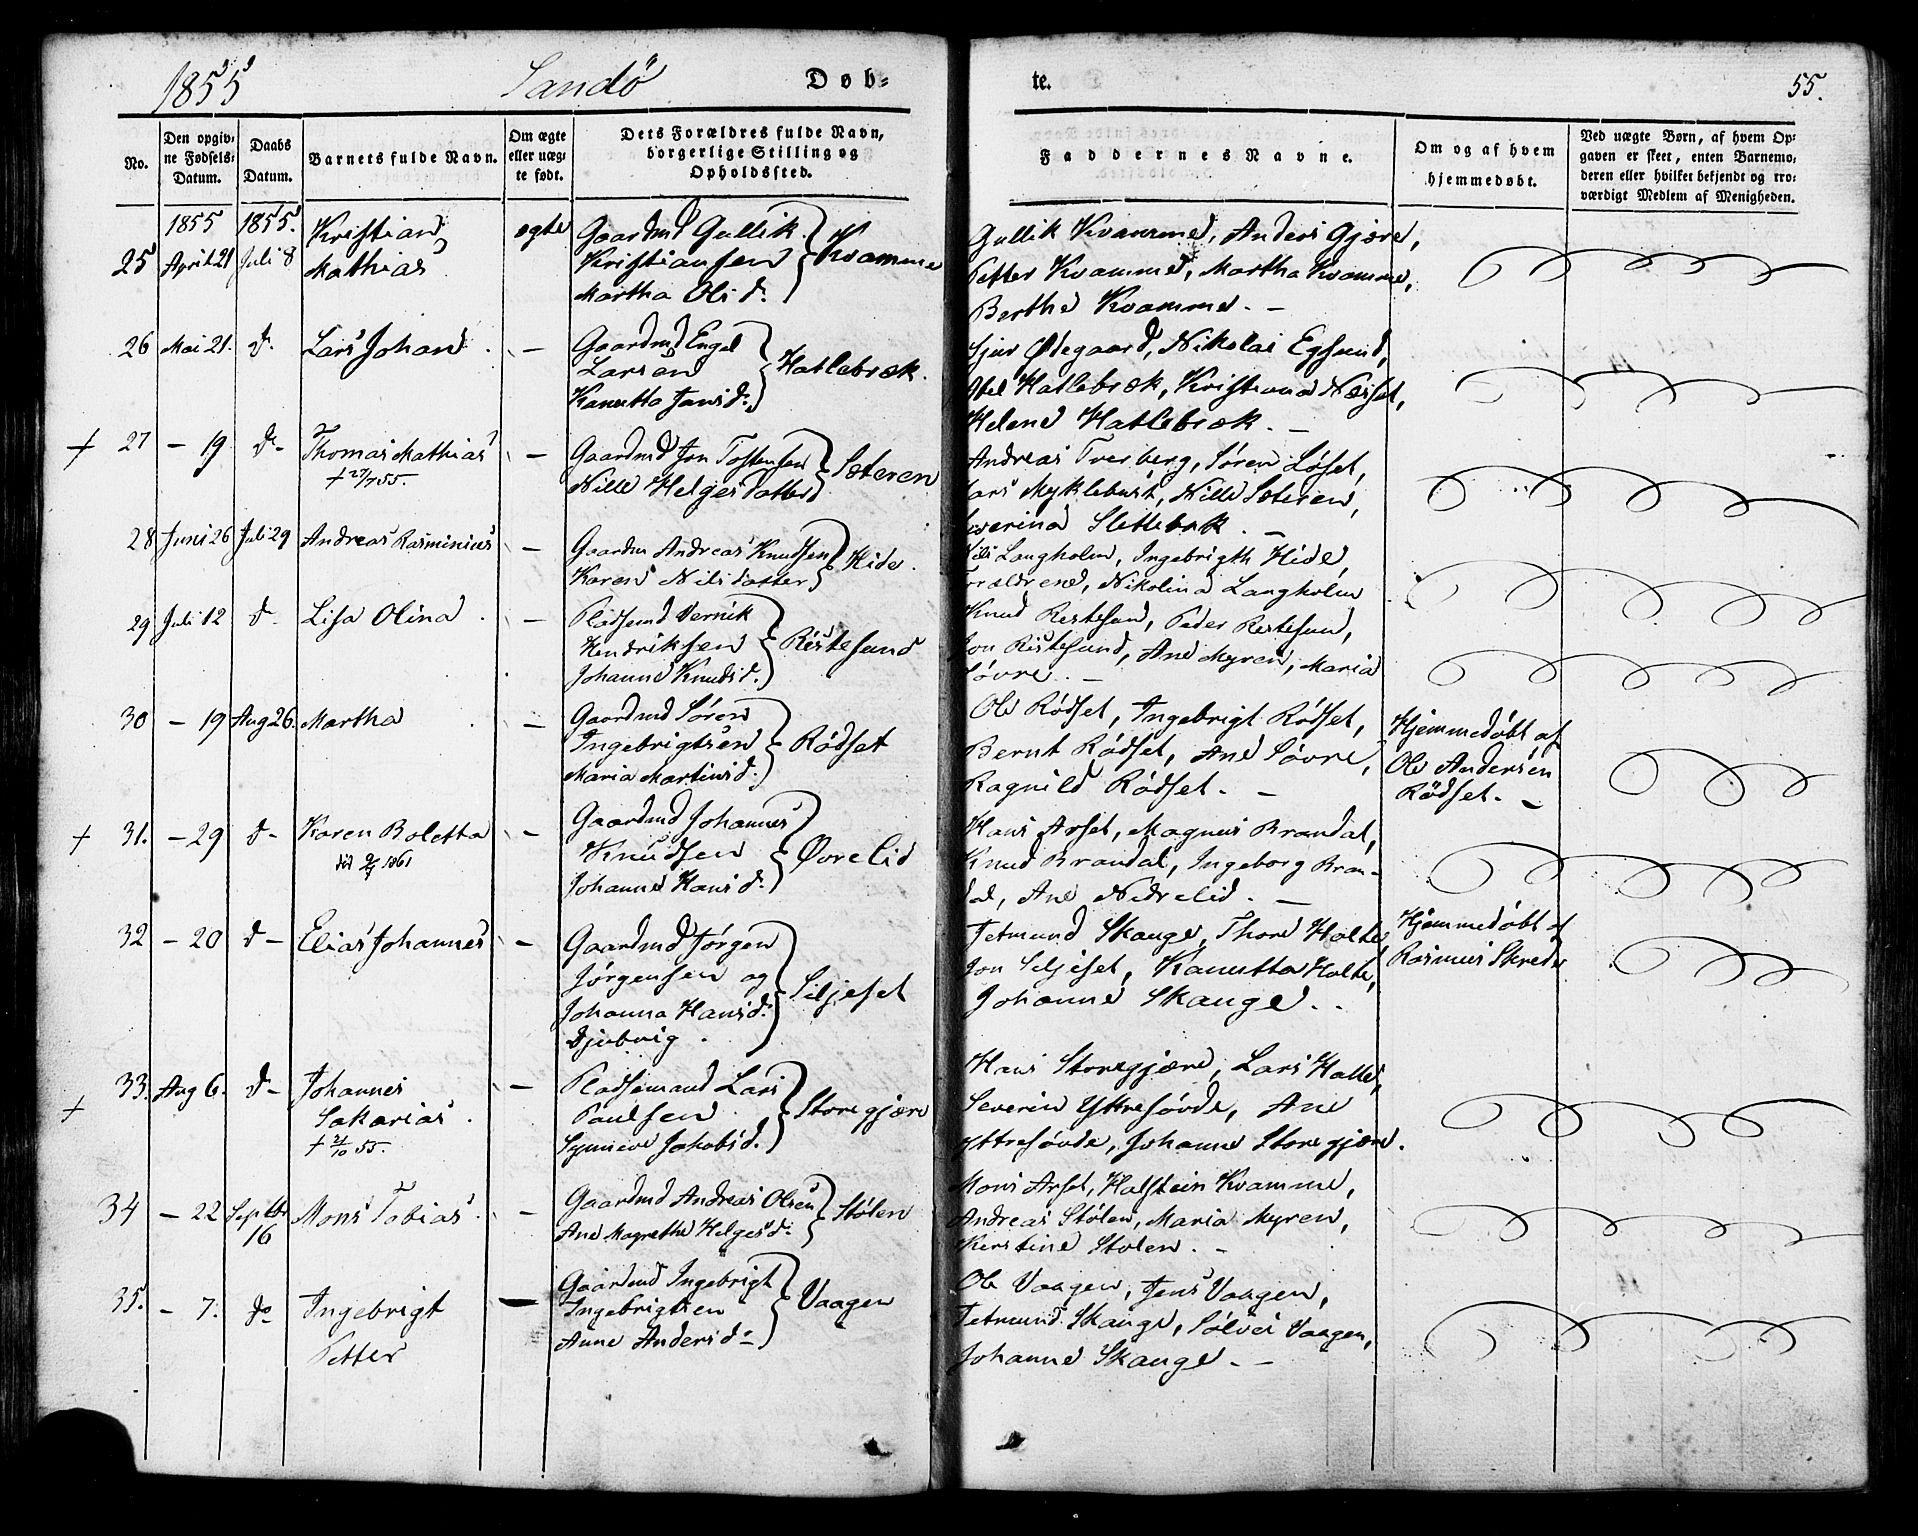 1855 Sandö Døb-
te. 55.
No.
Den opgiv-
ne Fødsels-
Datum.
Daabs
Datum.
Barnets fulde Navn.
Om ægte
eller uæg-
te født.
Dets Forældres fulde Navn,
borgerlige Stilling og
Opholdssted.
Faddernes Navne.
Om og af hvem
hjemmedøbt.
Ved uægte Børn, af hvem Op-
gaven er skeet, enten Barnemo-
deren eller hvilket bekjendt og tro-
værdigt Medlem af Menigheden.
1855 1855.
25 April 21 Juli 8
Kristian
Mathias
ægte
Gaardmd Gullik
Kristiansen
Martha Olsd.
Kvamme
Gullik Kvamme, Anders Gjære,
Petter Kvamme, Martha Kvamme,
Berthe Kvamme. -
26 Mai 21. d. Lars Johan. -
Gaardmd Engel
Larsen
Kanutta Jansd.
Hatlebræk.
Sjur Ødegaard, Nikolai Egsund,
Abel Hatlebræk, Kristiana Næsset,
Helene Hatlebræk. -
+ 27 - 19 d- Thomas Mathias -
+ 27/7 55.
Gaardmd Jon Tostensen
Nille Helgesdatter
Sæteren
Andreas Tverberg, Sören Löset,
Lars Myklebust, Nille Sæteren,
Severina Slettebak. -
28 Juni 26 Juli 29 Andreas Rasminius -
Gaardm Andreas Knudsen
Karen Nilsdatter
Hide.
Nils Langholm, Ingebrigth Hide,
Forældrene, Nikolina Langholm
29 Juli 12 d- Lisa Olina. -
Pladsemd Vernik
Hendriksen
Johanne Knudsd.
Ristesund
Knud Restesund, Peder Restesund,
Jon Ristesund, Ane Myren, Maria
Søvre. -
30 - 19 Aug 26. Martha. -
Gaardmd Sören
Ingebrigtsen
Maria Martinsd.
Rödset
Ole Rödset, Ingebrigt Rödset,
Bernt Rödset, Ane Søvre,
Ragnild Rödset. -
Hjemmedöbt af
Ole Andersen
Rödset. -
+ 31. - 29 d- Karen Boletta -
död 9/7 1861
Gaardmd Johannes
Knudsen
Johanne Hansd.
Øvrelid
Hans Arset, Magnus Brandal,
Knud Brandal, Ingeborg Bran-
dal, Ane Nedrelid. -
32 - 20 d- Elias Johannes -
Gaardmd Jörgen
Jörgensen og
Johanna Hansd.
Djubvig.
Siljeset
Tetmund Skauge, Thore Holte,
Jon Siljeset, Kanutta Holte,
Johanne Skauge. .
Hjemmedöbt af
Rasmus Skrede
33. Aug 6. d- Johannes -
+ Sakarias.
+ 21/10 55.
Pladsemand Lars
Paulsen
Synneve Jakobsd.
Storegjære
Hans Storegjære, Lars Holte,
Severin Yttresövde, Ane
Yttresövde, Johanne Storegjære.
34 - 22 Septbr
16
Mons Tobias. -
Gaardmd Andreas Olsen
Ane Magrethe Helgesd.
Stölen
Mons Arset, Halstein Kvamme,
Andreas Stölen, Maria Myren,
Kerstine Stolen. -
35. - 7. do Ingebrigt -
Petter
Gaardmd Ingebrigt
Ingebrigtsen
Anne Andersd-
Vaagen
Ole Vaagen, Jens Vaagen,
Tetmund Skauge, Sölvei Vaagen,
Johanne Skauge. -